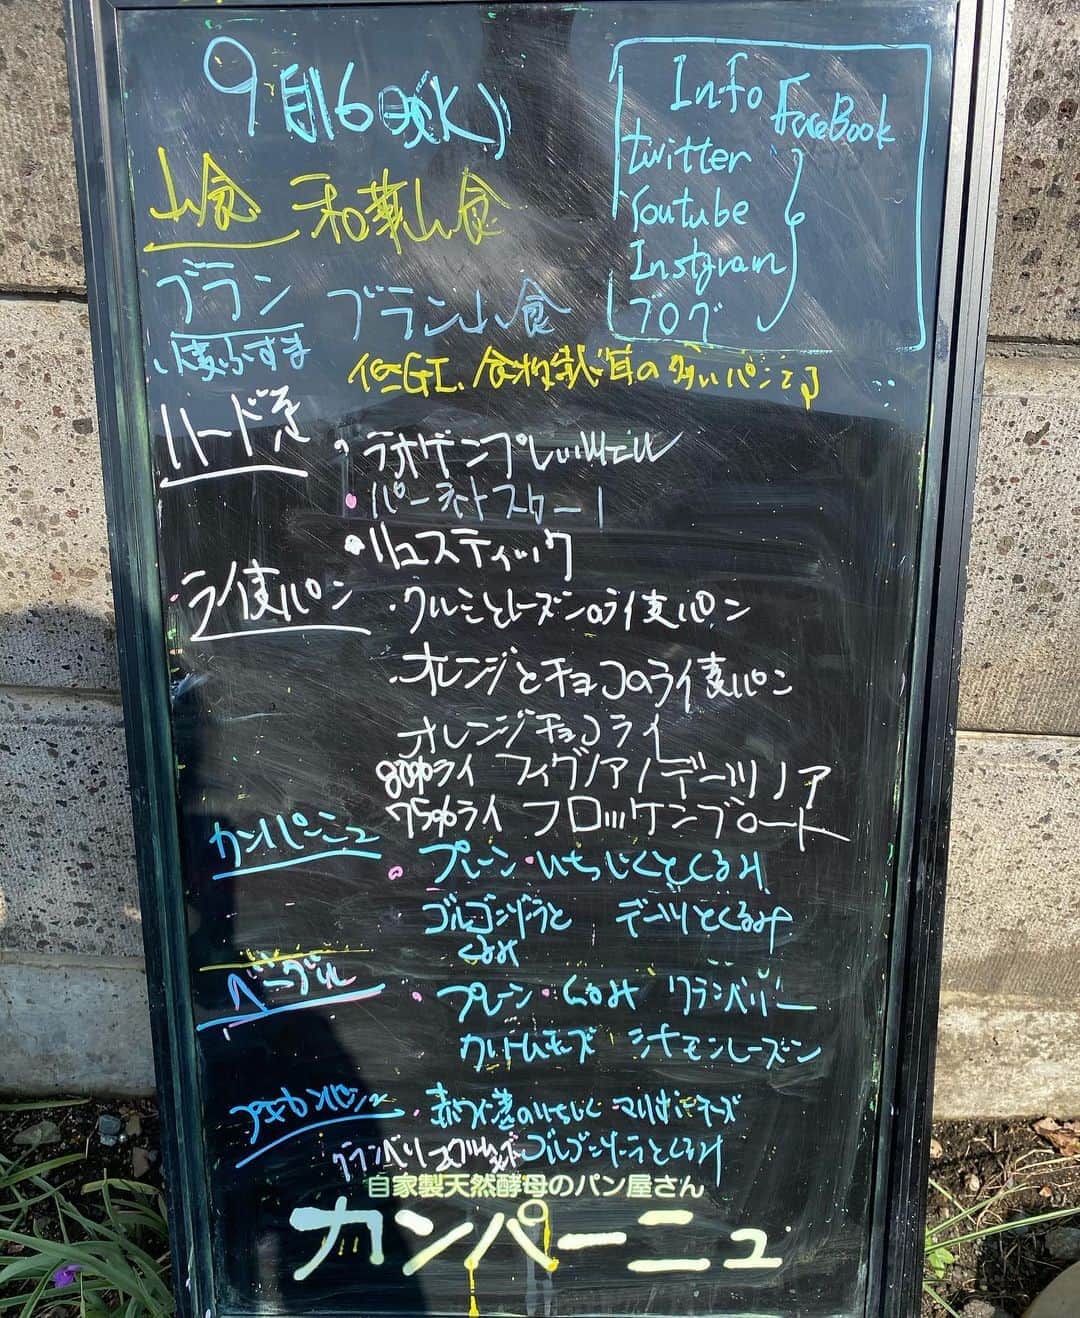 9月16日(火)
Info
FaceBook
twitter
Youtube
Instgram
ブログ
山食 和華山食
ブラン ブラン山食
小麦ふすま
低GI、食物繊維の多いパンです
ハード系
ラオゲンプレッツェル
リュスティック
ライ麦パン ・クルミとレーズンのライ麦パン
・オレンジとチョコのライ麦パン
オレンジチョコライ
80%ライ フィグノア/デーツノア
75%ライ フロッケンブロート
カンパーニュ
プレーン・いちじくとくるみ
ゴルゴンゾラと デーツとくるみ
くるみ
ベーグル
・プレーン・くるみ クランベリー
クリームチーズ シナモンレーズン
プチカンパーニュ
・赤ワイン煮のいちじく
ゴルゴンゾーラとくるみ
自家製天然酵母のパン屋さん
カンパーニュ